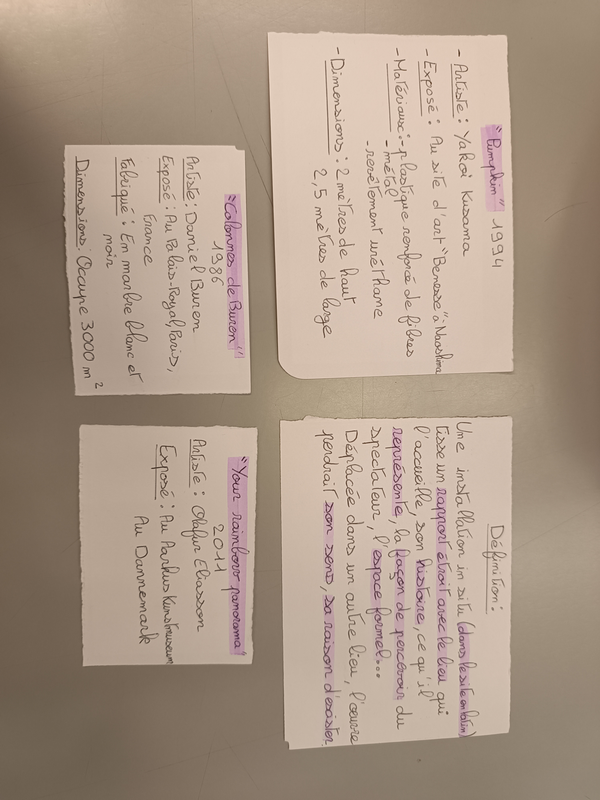 "Pumpkin" 1994
- Artiste : Yakoi Kusama
- Exposé : Au site d'art "Benesse" à Naoshima
- Matériaux : - plastique renforcé de fibres
- métal
- revêtement uréthame
- Dimensions : 2 mètres de haut
2,5 mètres de large
Définition :
Une installation in situ (dans le site en latin)
tisse un rapport étroit avec le lieu qui
l'accueille, son histoire, ce qu'il
représente, la façon de percevoir du
spectateur, l'espace formel...
Déplacée dans un autre lieu, l'œuvre
perdrait son sens, sa raison d'exister.
"Colonnes de Buren"
1986
Artiste : Daniel Buren
Exposé : Au Palais-Royal, Paris,
France
Fabriqué : En marbre blanc et
noir
Dimensions : Occupe 3000 m²
"Your rainbow panorama"
2011
Artiste : Olafur Eliasson
Exposé : Au Aarhus Kunstmuseum
Au Dannemark